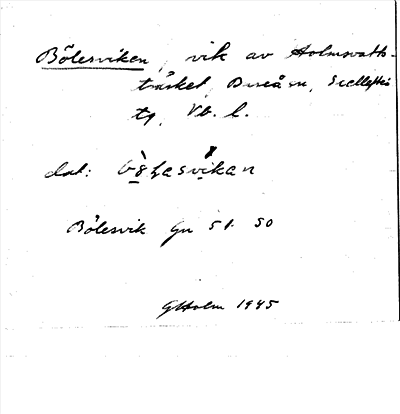 Bölesviken, vik av Holmsvatts-
träsket, Bureå sn, Skellefteå
tg, Vb. l.
dial:
Bölesvik Gn 51. 50
GHolm 1945